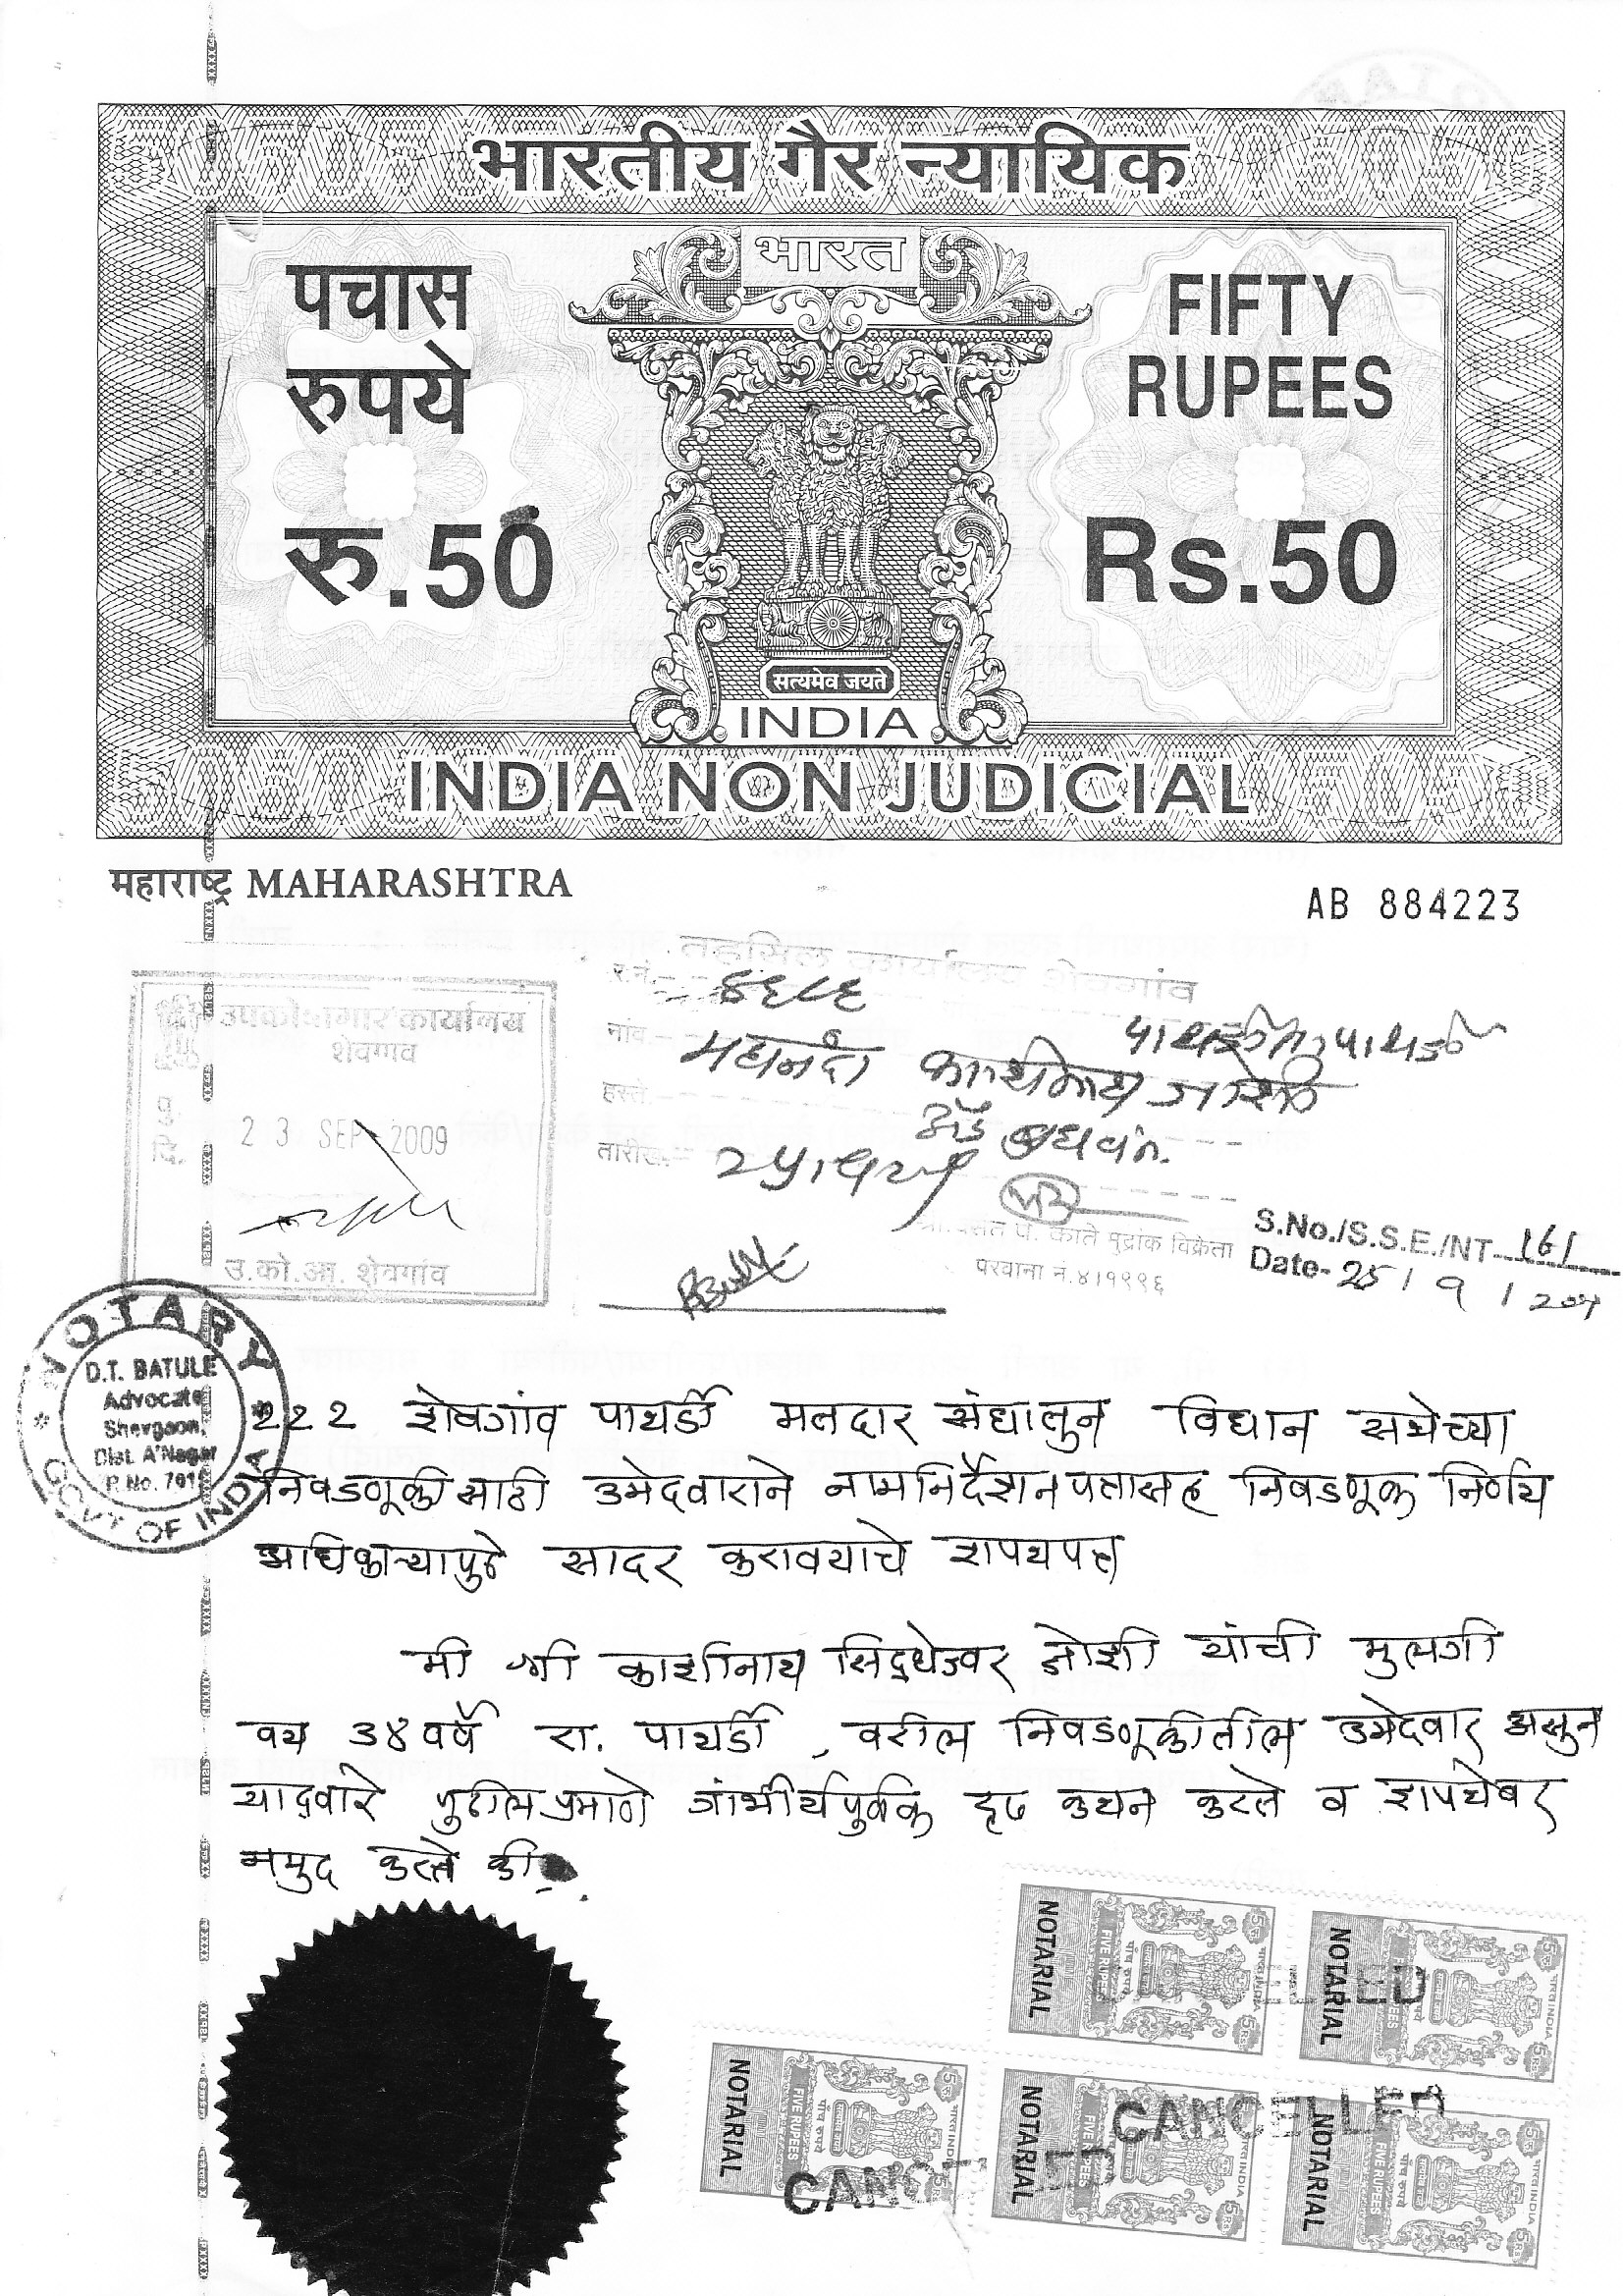 भारतीय गैर न्यायिक
भारत
पचास
रुपये
रु.50
FIFTY
RUPEES
Rs.50
सत्यमेव जयते
INDIA
INDIA NON JUDICIAL
महाराष्ट्र MAHARASHTRA
AB 884223
उपकोषागार कार्यालय
शेवगाव
दि. 23 SEP 2009
उ.को.आ. शेवगांव
तहसिल शेवगांव
र.नं. ४६८६
नांव
हस्ते
तारीख
प. काते मुद्रांक विक्रेता
परवाना नं.४।१९९६
S.No./S.S.E./NT 161
Date- 25 / 9 / 2009
NOTARY
D.T. BATULE
Advocate
Shevgaon,
Dist. A'Nagar
GOVT OF INDIA
२२२ शेवगांव पाथर्डी मतदार संघातुन विधान सभेच्या
निवडणूकीसाठी उमेदवाराने नामनिर्देशनपत्रासह निवडणूक निर्णय
अधिकाऱ्यापुढे सादर करावयाचे शपथपत्र
मी श्री काशीनाथ सिद्धेश्वर जोशी यांची मुलगी
वय ३४ वर्षे रा. पाथर्डी, वरील निवडणूकीतील उमेदवार असुन
याद्वारे पुढीलप्रमाणे गांभीर्यपुर्वक दृढ कथन करते व शपथेवर
नमुद करते की
NOTARIAL
NOTARIAL
NOTARIAL
NOTARIAL
NOTARIAL
FIVE RUPEES
पांच रुपये
भारत INDIA
CANCELLED